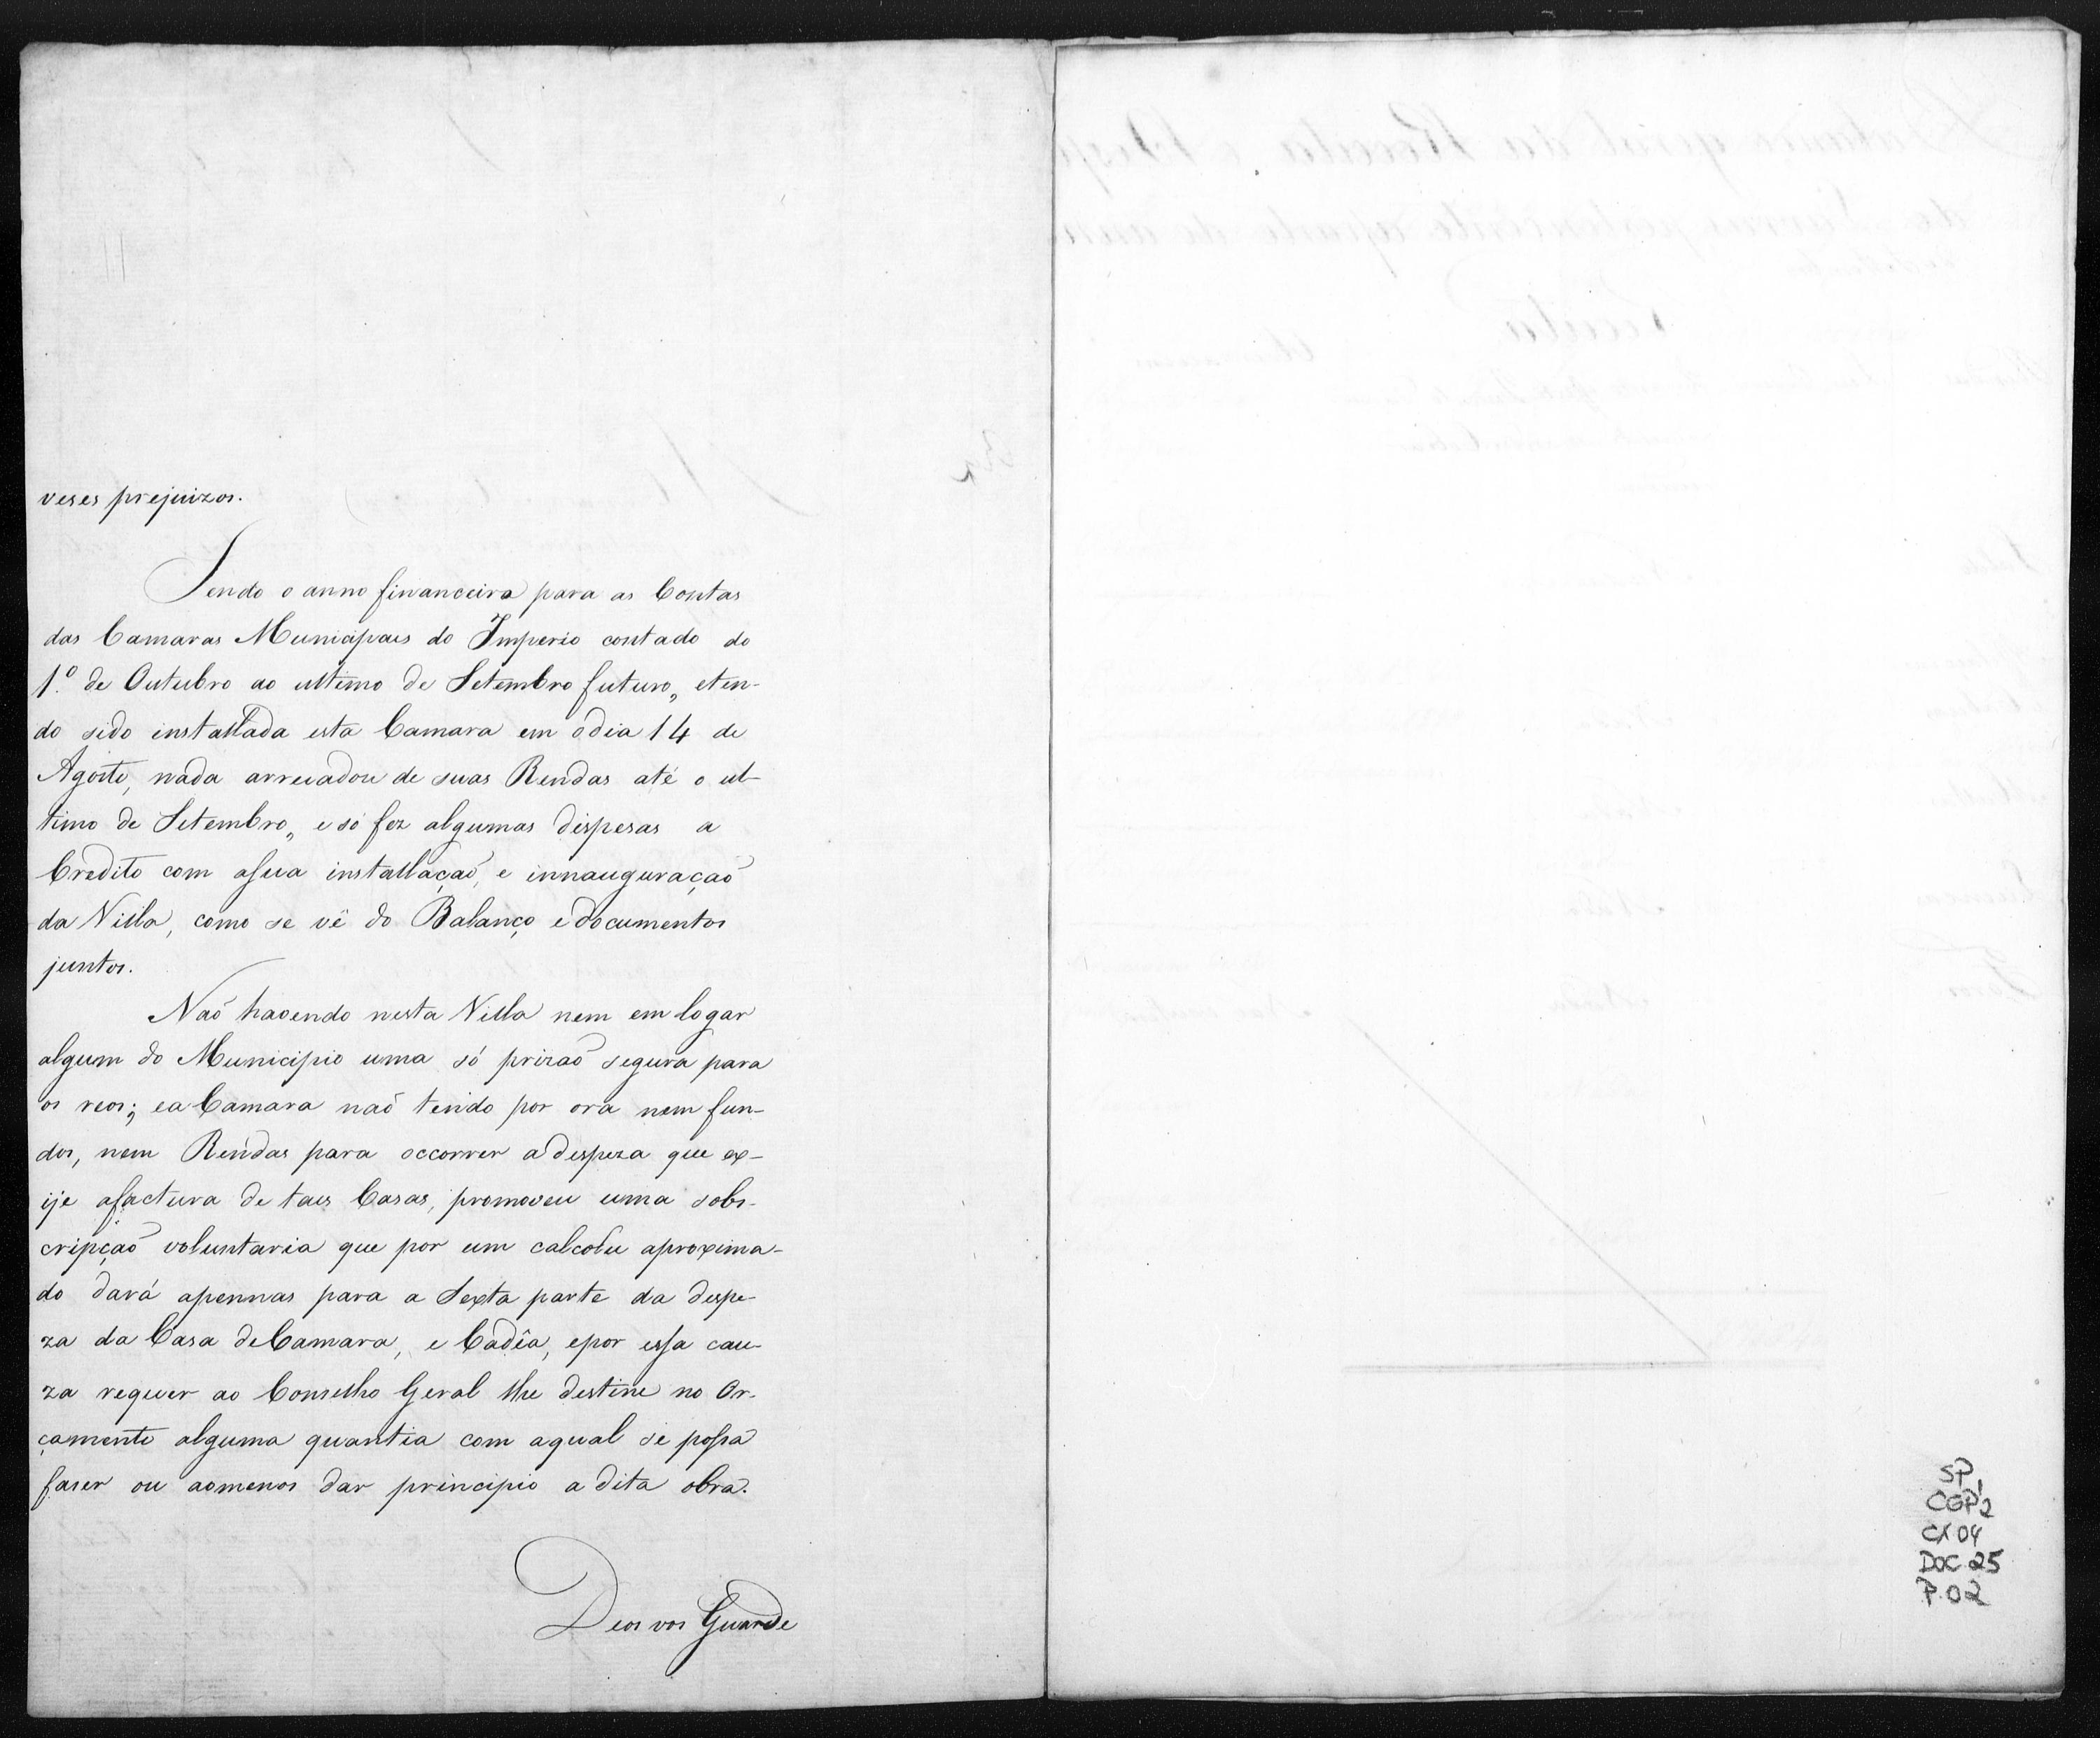 veses prejuizos.
Sendo o anno financeiro para as Contas
das Camaras Municipaes do Imperio contado do
1.º de Outubro ao ultimo de Setembro futuro, eten-
do sido installada esta Camara em odia 14 de
Agosto, nada arrecadou de suas Rendas até o ul-
timo de Setembro, e só fez algumas dispesas a
Credito com asua installação, e innauguração
da Villa, como se vê do Balanço edocumentos
juntos.
Não havendo nesta Villa nem em logar
algum do Municipio uma só prizão segura para
os reos; ea Camara não tendo por ora nem fun-
dos, nem Rendas para occorrer adespeza que ex-
ije afactura de taes Casas, promoveu uma sobs-
cripção voluntaria que por um calcolu aproxima-
do dará apennas para a Sexta parte da despe-
za da Casa deCamara, e Cadêa, epor essa cau-
za requer ao Conselho Geral lhe destine no Or-
çamento alguma quantia com aqual se possa
faser ou aomenos dar principio a dita obra.
Deos vos Guarde
SP,
CGP2
CX 04
DOC 25
P.02